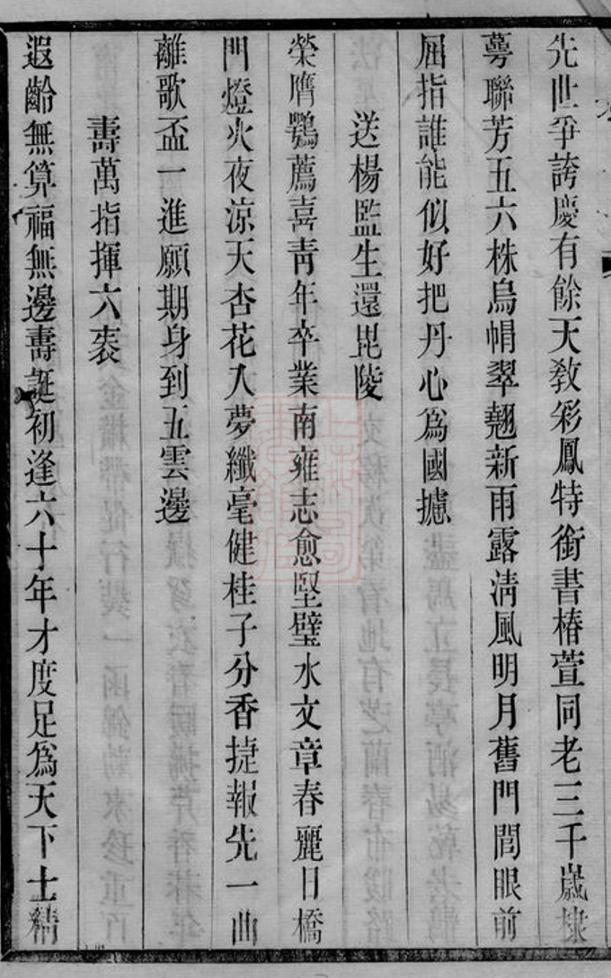 先世爭誇慶有餘天敎彩鳳特銜書椿萱同老三千歲棣
萼聯芳五六株烏帽翠翹新雨露淸風明月舊門閭眼前
屈指誰能似好把丹心爲國攄
送楊監生還毘陵
榮膺鶚薦喜靑年卒業南雍志愈堅璧水文章春麗日橋
門燈火夜涼天杏花入夢纖毫健桂子分香捷報先一曲
離歌盃一進願期身到五雲邊
壽萬指揮六袠
遐齡無算福無邊壽誕初逢六十年才度足爲天下士精